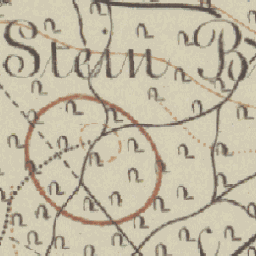 Stein B